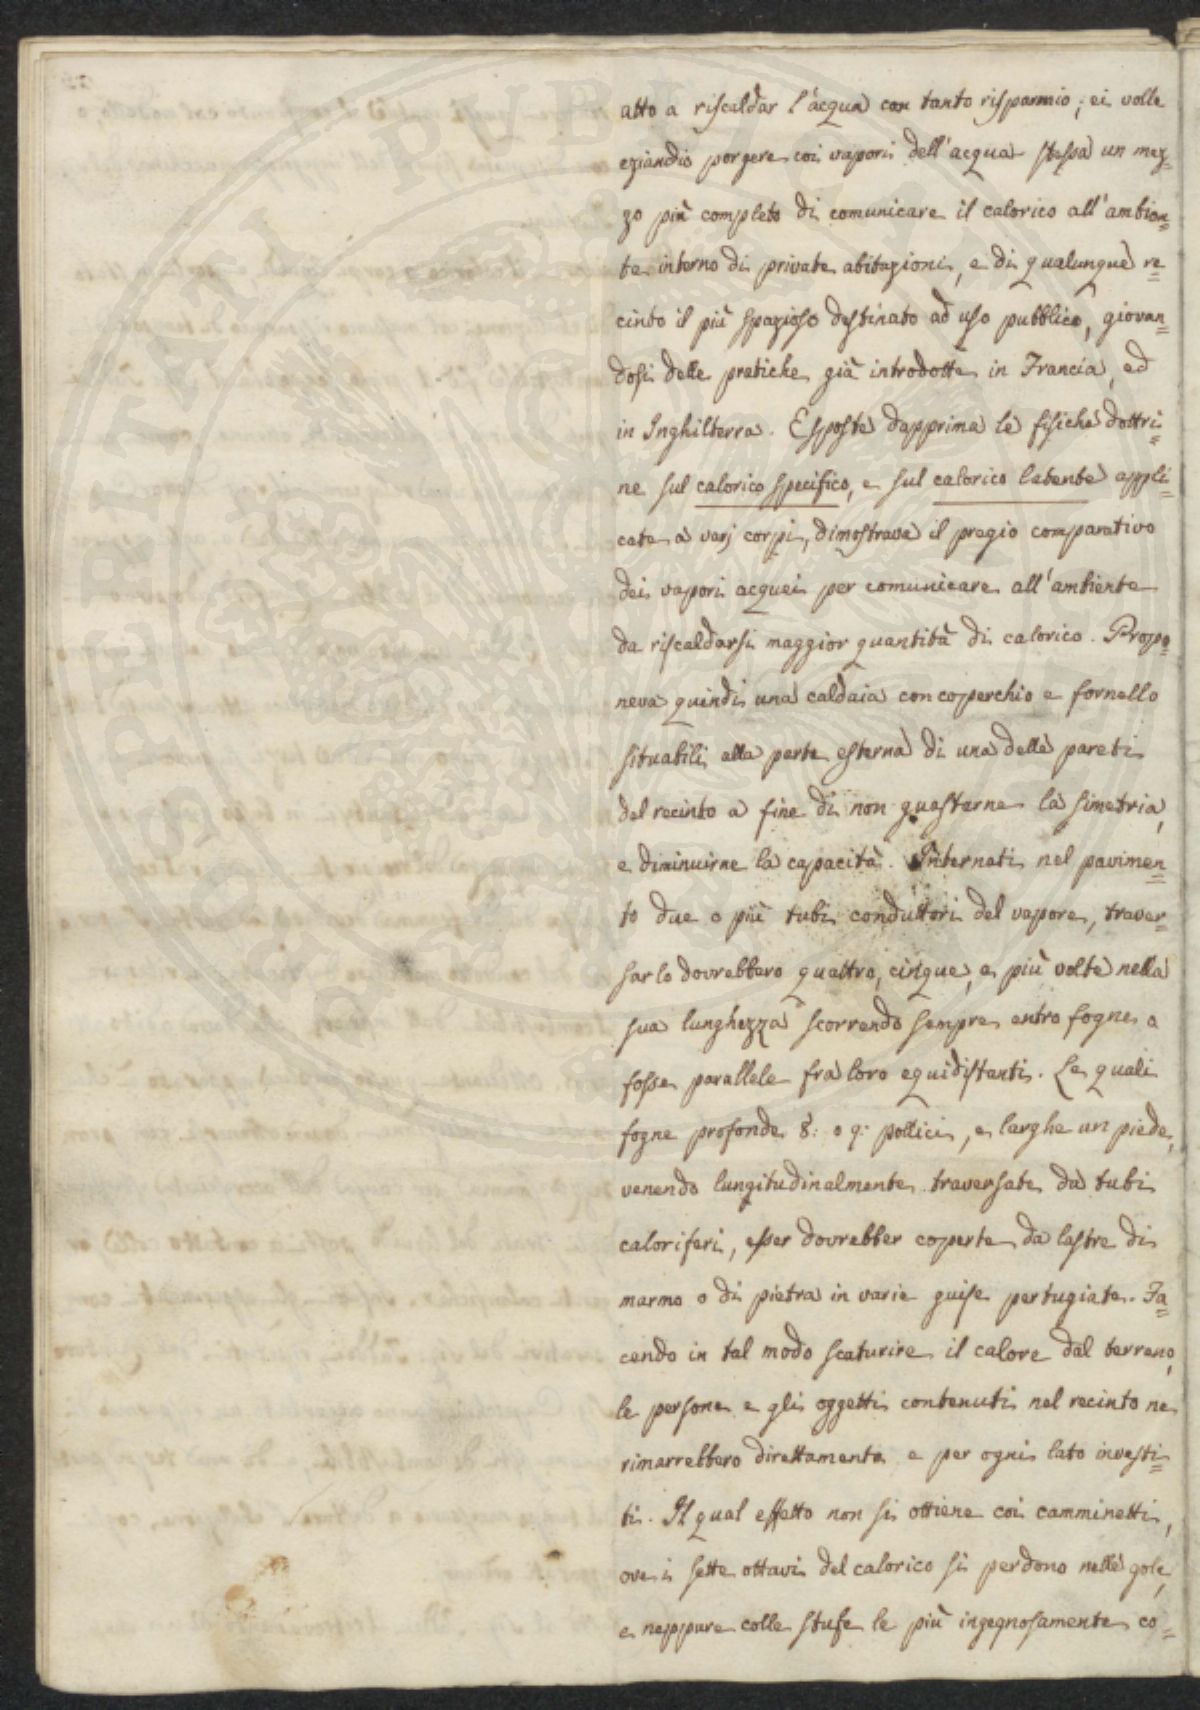 atto a riscaldar l'acqua con tanto risparmio; ei volle
eziandio porgere coi vapori dell'acqua stessa un mez=
zo più completo di comunicare il calorico all'ambien=
te interno di private abitazioni, e di qualunque re=
cinto il più spazioso destinato ad uso pubblico, giovan=
dosi delle pratiche già introdotte in Francia, ed
in Inghilterra. Esposte dapprima le fisiche dottri=
ne sul calorico specifico, e sul calorico latente appli=
cate a varj corpi, dimostrava il pregio comparativo
dei vapori acquei per comunicare all'ambiente
da riscaldarsi maggior quantità di calorico. Propo=
neva quindi una caldaia con coperchio e fornello
situabili alla parte esterna di una delle pareti
del recinto a fine di non guastarne la simetria,
e diminuirne la capacità. Internati nel pavimen=
to due o più tubi conduttori del vapore, traver=
sarlo dovrebbero quattro, cinque, e più volte nella
sua lunghezza scorrendo sempre entro fogne o
fosse parallele fra loro equidistanti. Le quali
fogne profonde 8: o 9: pollici, e larghe un piede,
venendo lungitudinalmente traversate da tubi
caloriferi, esser dovrebber coperte da lastre di
marmo o di pietra in varie guise pertugiate. Fa=
cendo in tal modo scaturire il calore dal terreno,
le persone e gli oggetti contenuti nel recinto ne
rimarrebbero direttamente e per ogni lato investi=
ti. Il qual effetto non si ottiene coi camminetti,
ove i sette ottavi del calorico si perdono nelle gole,
e neppure colle stufe le più ingegnosamente co=